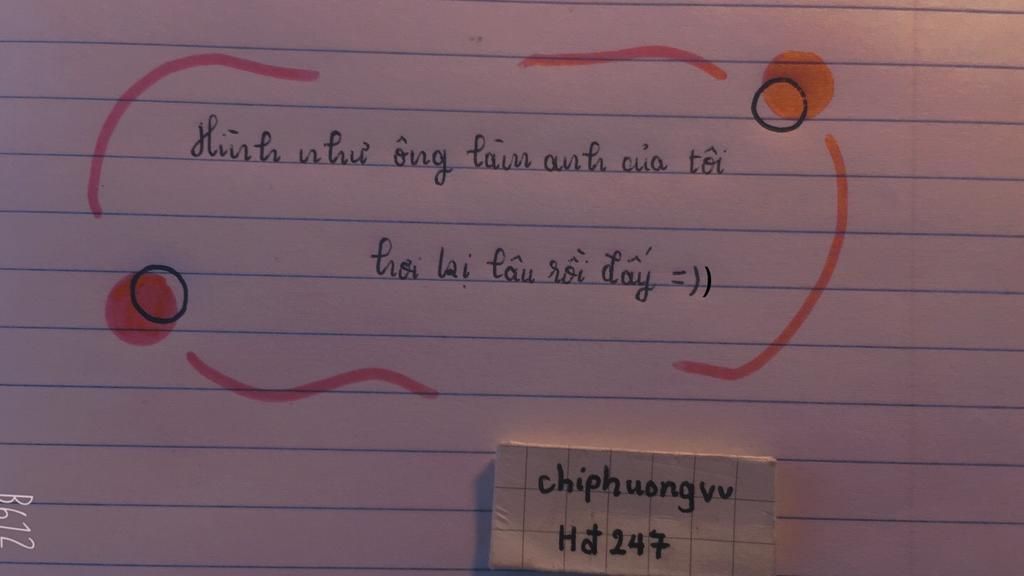 Hình như ông làm anh của tôi
hơi lại lâu rồi đấy =))
chiphuongvv
Hđ 247
B612